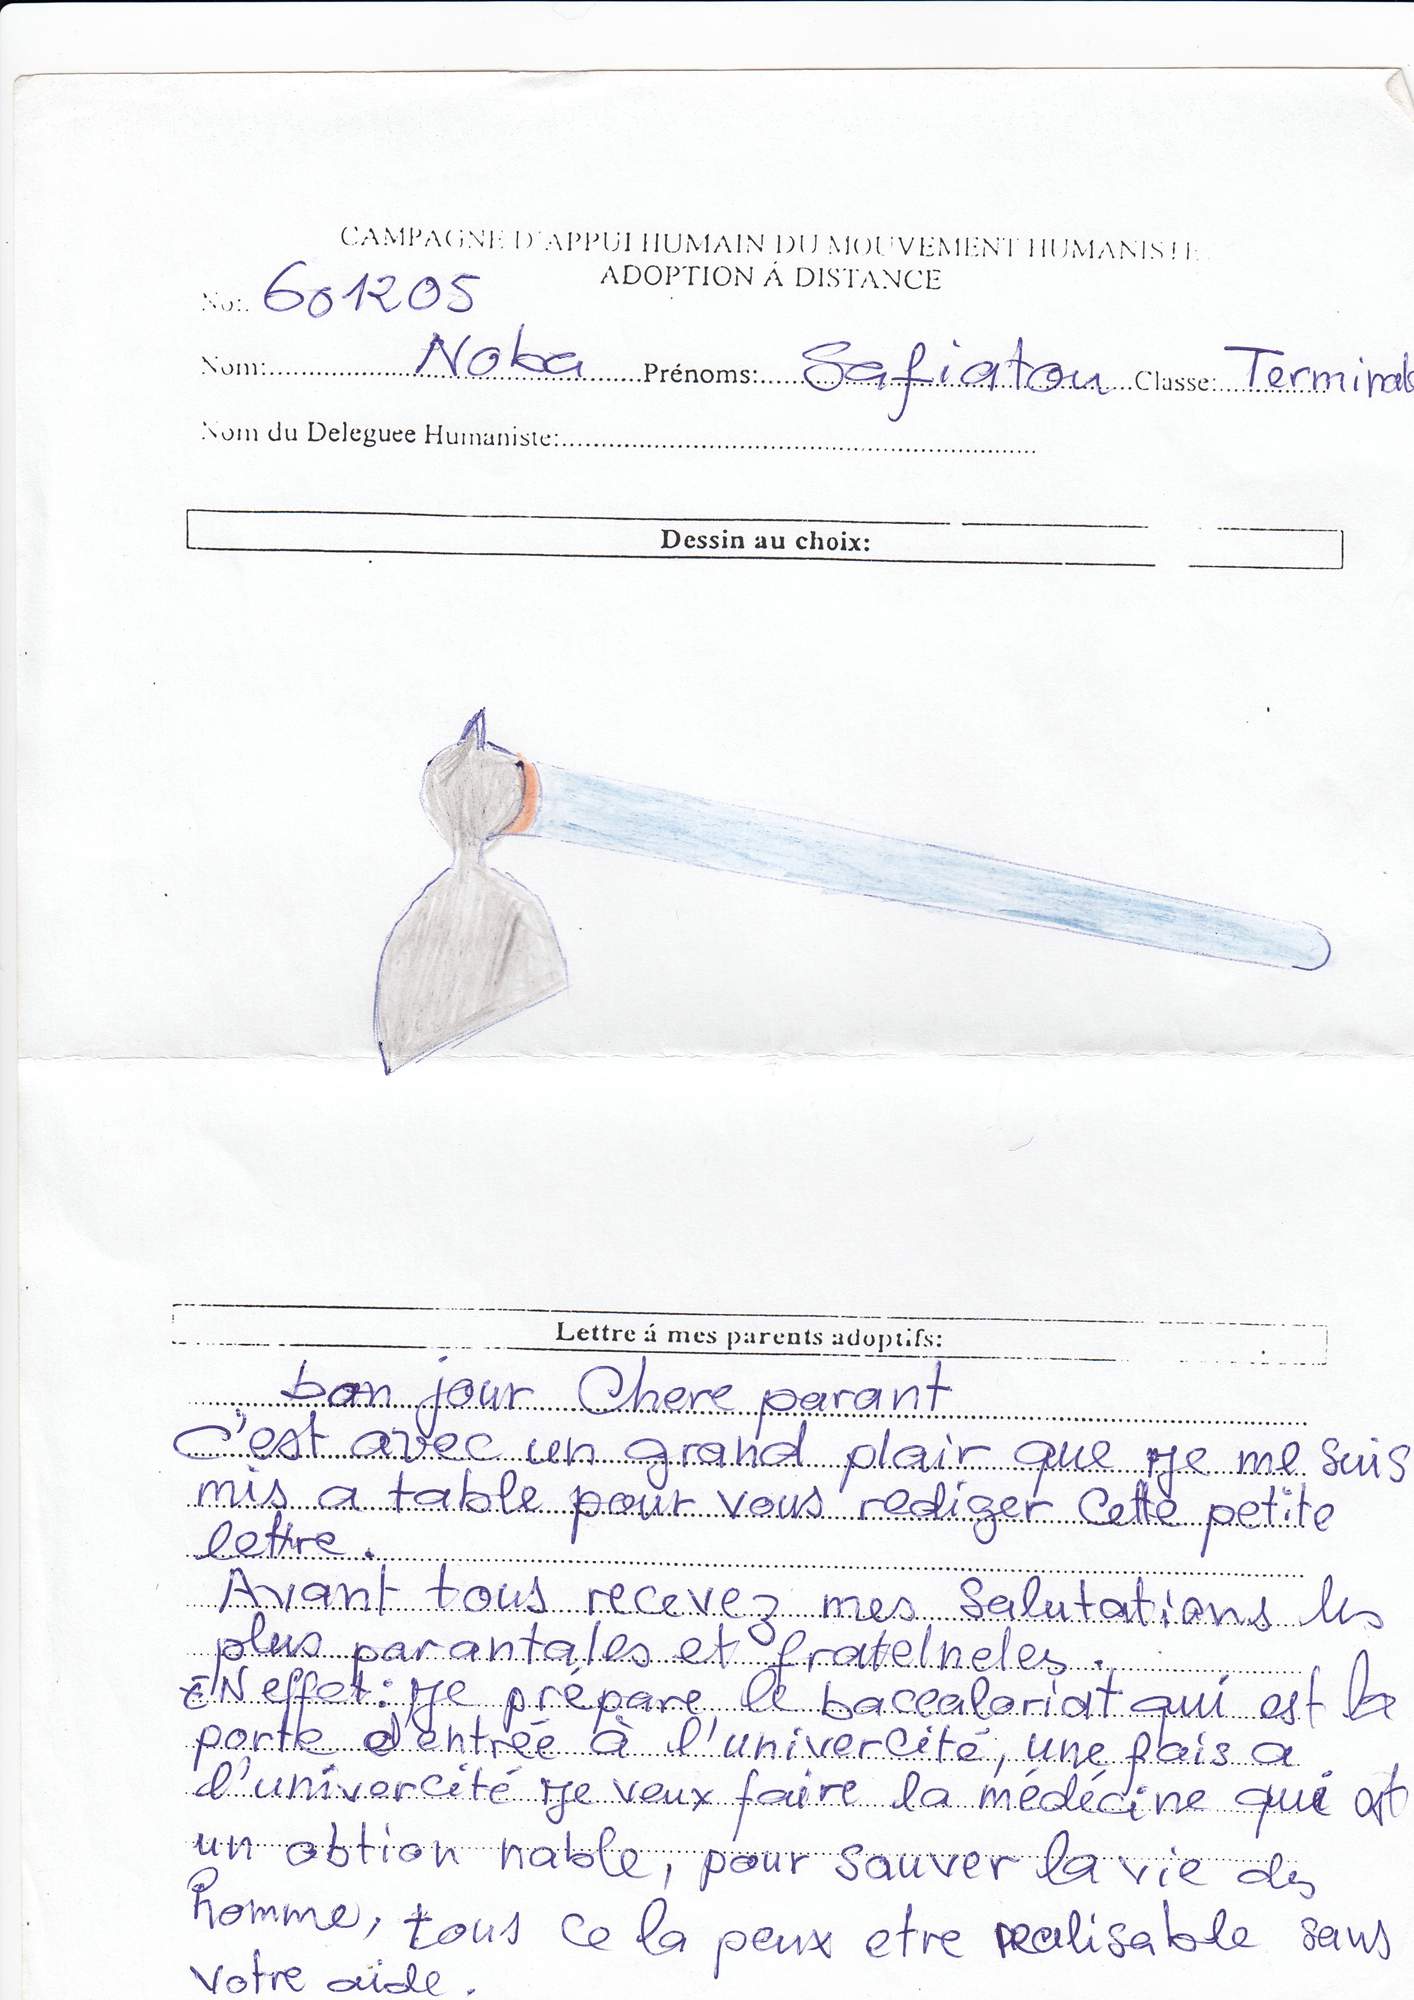 CAMPAGNE D'APPUI HUMAIN DU MOUVEMENT HUMANISTE
ADOPTION Á DISTANCE
No:. 601205
Nom:.................... Noba ......Prénoms:..... Safiatou ...Classe:... Terminale
Nom du Deleguee Humaniste:............................................................
Dessin au choix:
Lettre á mes parents adoptifs:
bon jour Chere parant
C'est avec un grand plair que je me suis
mis a table pour vous rediger cette petite
lettre.
Avant tous recevez mes Salutations les
plus parantales et fratelneles.
EN effet: je prépare le baccaloriat qui est la
porte d'entrée à l'univercité, une fais a
l'univercité je veux faire la médécine qui est
un obtion nable, pour sauver la vie des
homme, tous ce la peux etre realisable sans
votre aide.